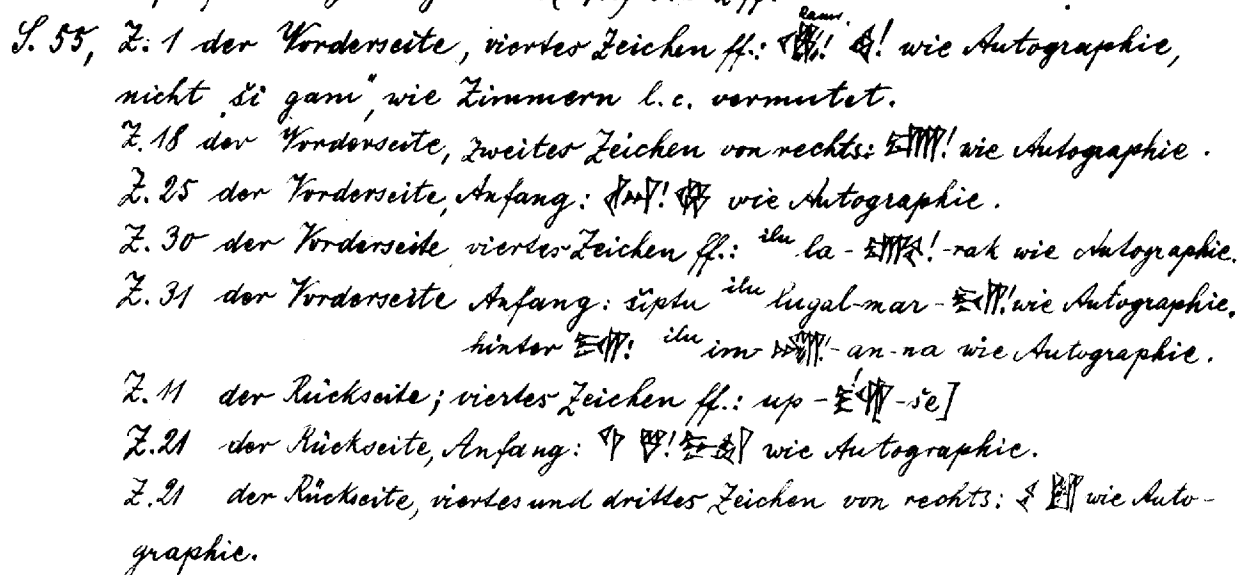 S. 55, Z. 1 der Vorderseite, viertes Zeichen ff.: ! ! wie Autographie,
nicht „ši gam", wie Zimmern l. c. vermutet.
Z. 18 der Vorderseite, zweites Zeichen von rechts: ! wie Autographie.
Z. 25 der Vorderseite, Anfang: ! wie Autographie.
Z. 30 der Vorderseite viertes Zeichen ff.: ilu la - ! -rak wie Autographie.
Z. 31 der Vorderseite Anfang: šiptu ilu lugal-mar - ! wie Autographie.
hinter ! ilu im - ! -an-na wie Autographie.
Z. 11 der Rückseite; viertes Zeichen ff.: up - ! -še]
Z. 21 der Rückseite, Anfang: ! wie Autographie.
Z. 21 der Rückseite, viertes und drittes Zeichen von rechts: wie Auto-
graphie.